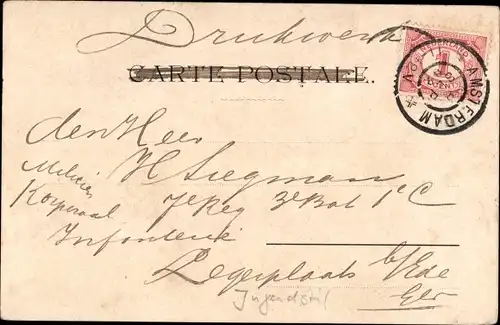 Drukwerk
CARTE POSTALE.
NEDERLAND
1
CENT
AMSTERDAM
den Heer
H Siegman
Milicien
Korporaal 7e Reg 3e Bat 1e C
Infanterie
Legerplaats b/Ede
Gel
Jugendstil